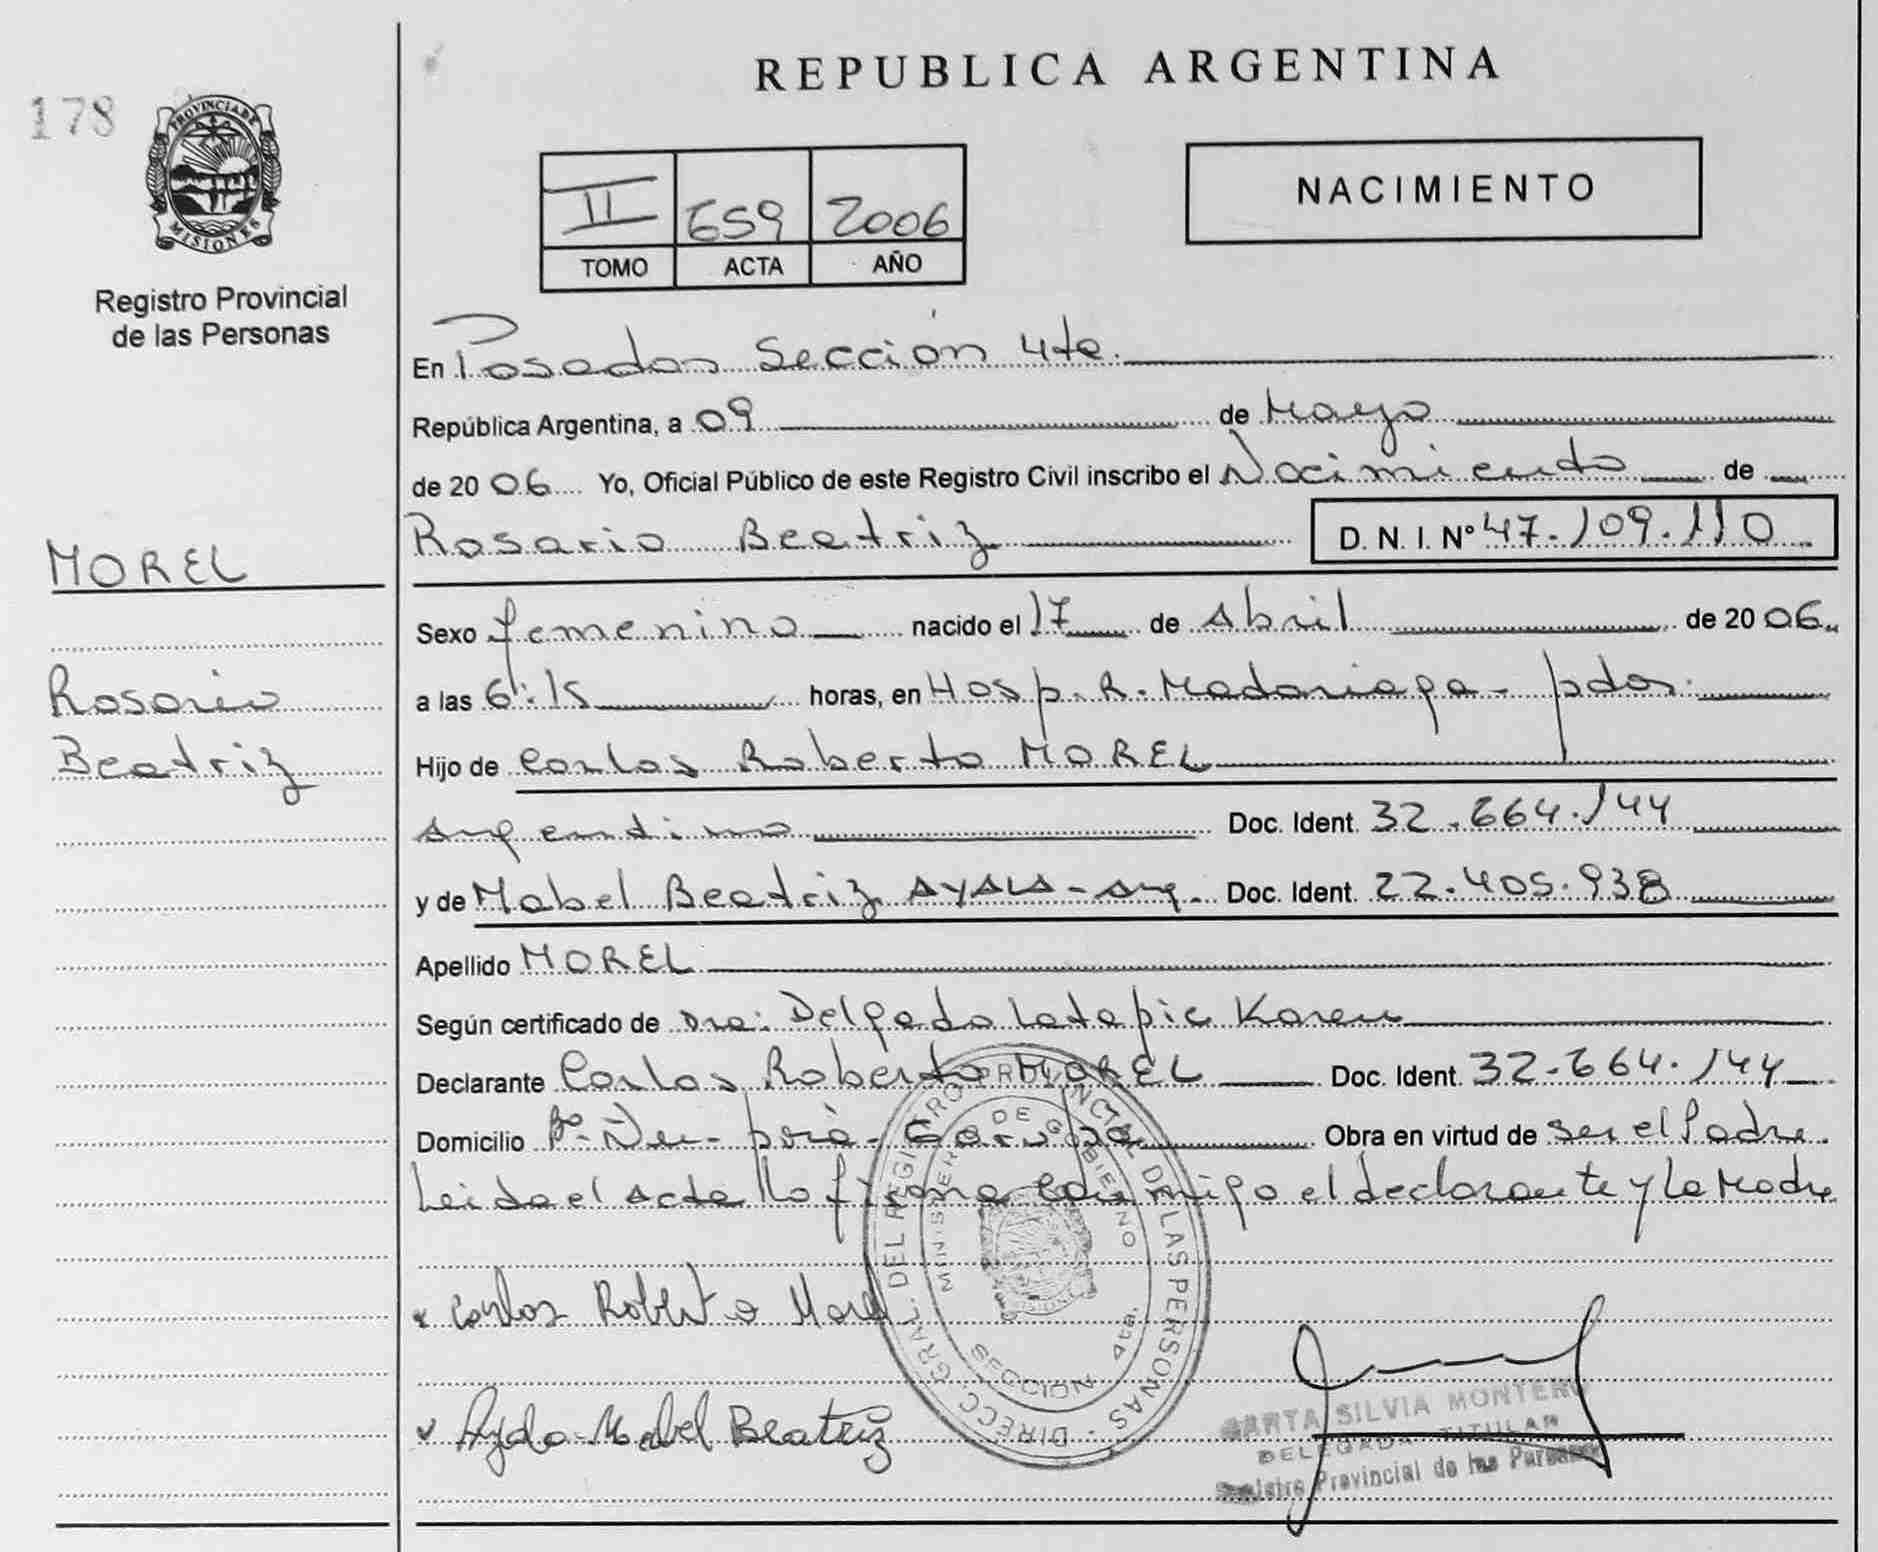 REPUBLICA ARGENTINA
178
PROVINCIA DE
MISIONES
Registro Provincial
de las Personas
II 659 2006
TOMO ACTA AÑO
NACIMIENTO
En Posadas Sección 4ta.
República Argentina, a 09 de Mayo
de 2006 Yo, Oficial Público de este Registro Civil inscribo el Nacimiento de
Rosario Beatriz D.N.I. Nº 47.109.110
MOREL
Rosario
Beatriz
Sexo femenino nacido el 17 de Abril de 2006
a las 6:15 horas, en Hosp. R. Madariaga - pdas.
Hijo de Carlos Roberto MOREL
Argentino Doc. Ident. 32.664.144
y de Mabel Beatriz AYALA - Arg. Doc. Ident. 22.405.938
Apellido MOREL
Según certificado de Dra: Delgado Latapie Karen
Declarante Carlos Roberto MOREL Doc. Ident. 32.664.144
Domicilio Bº Garupá Obra en virtud de ser el Padre
Leida el Acta la firma conmigo el declarante y la Madre
Carlos Roberto Morel
Ayala Mabel Beatriz
DIRECC. GRAL. DEL REGISTRO PROVINCIAL DE LAS PERSONAS
MINISTERIO DE GOBIERNO
SECCION 4ta.
MISIONES
SILVIA MONTERO
DELEGADA TITULAR
Registro Provincial de las Personas